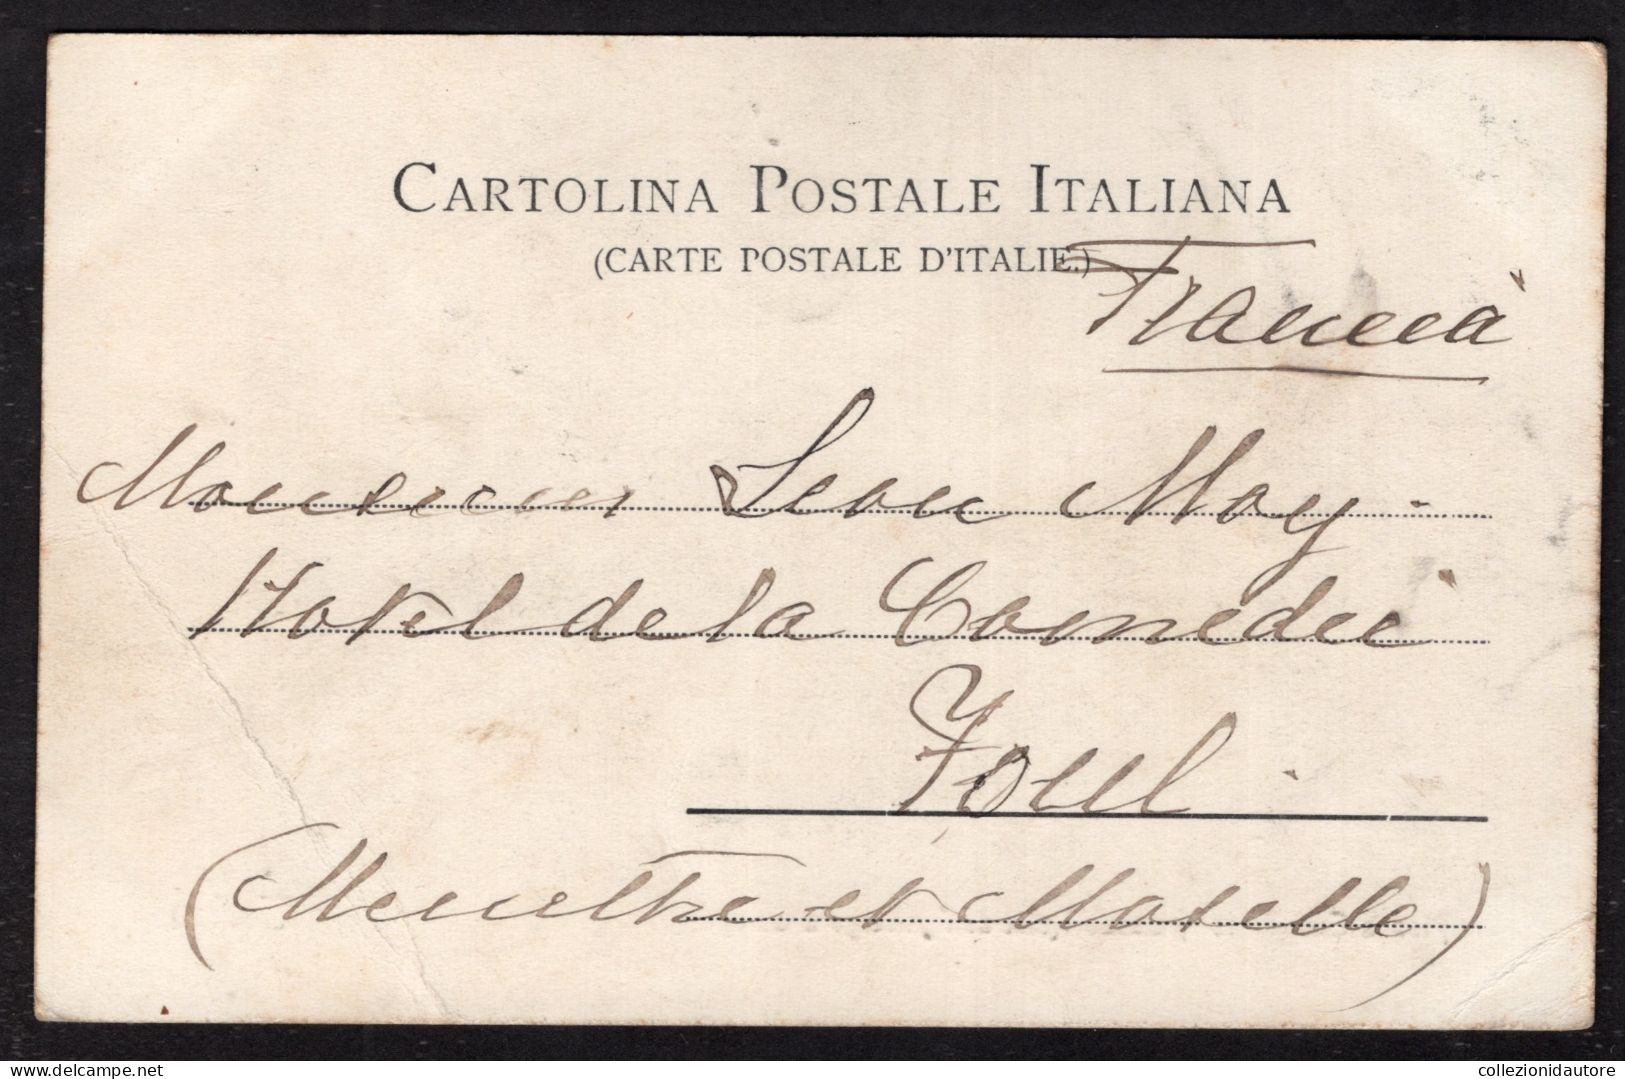 CARTOLINA POSTALE ITALIANA
(CARTE POSTALE D'ITALIE.)
Francia
Monsieur Leon Moy.
Hotel de la Comedie
Toul.
(Meurthe et Moselle)
delcampe.net
collezionidautore